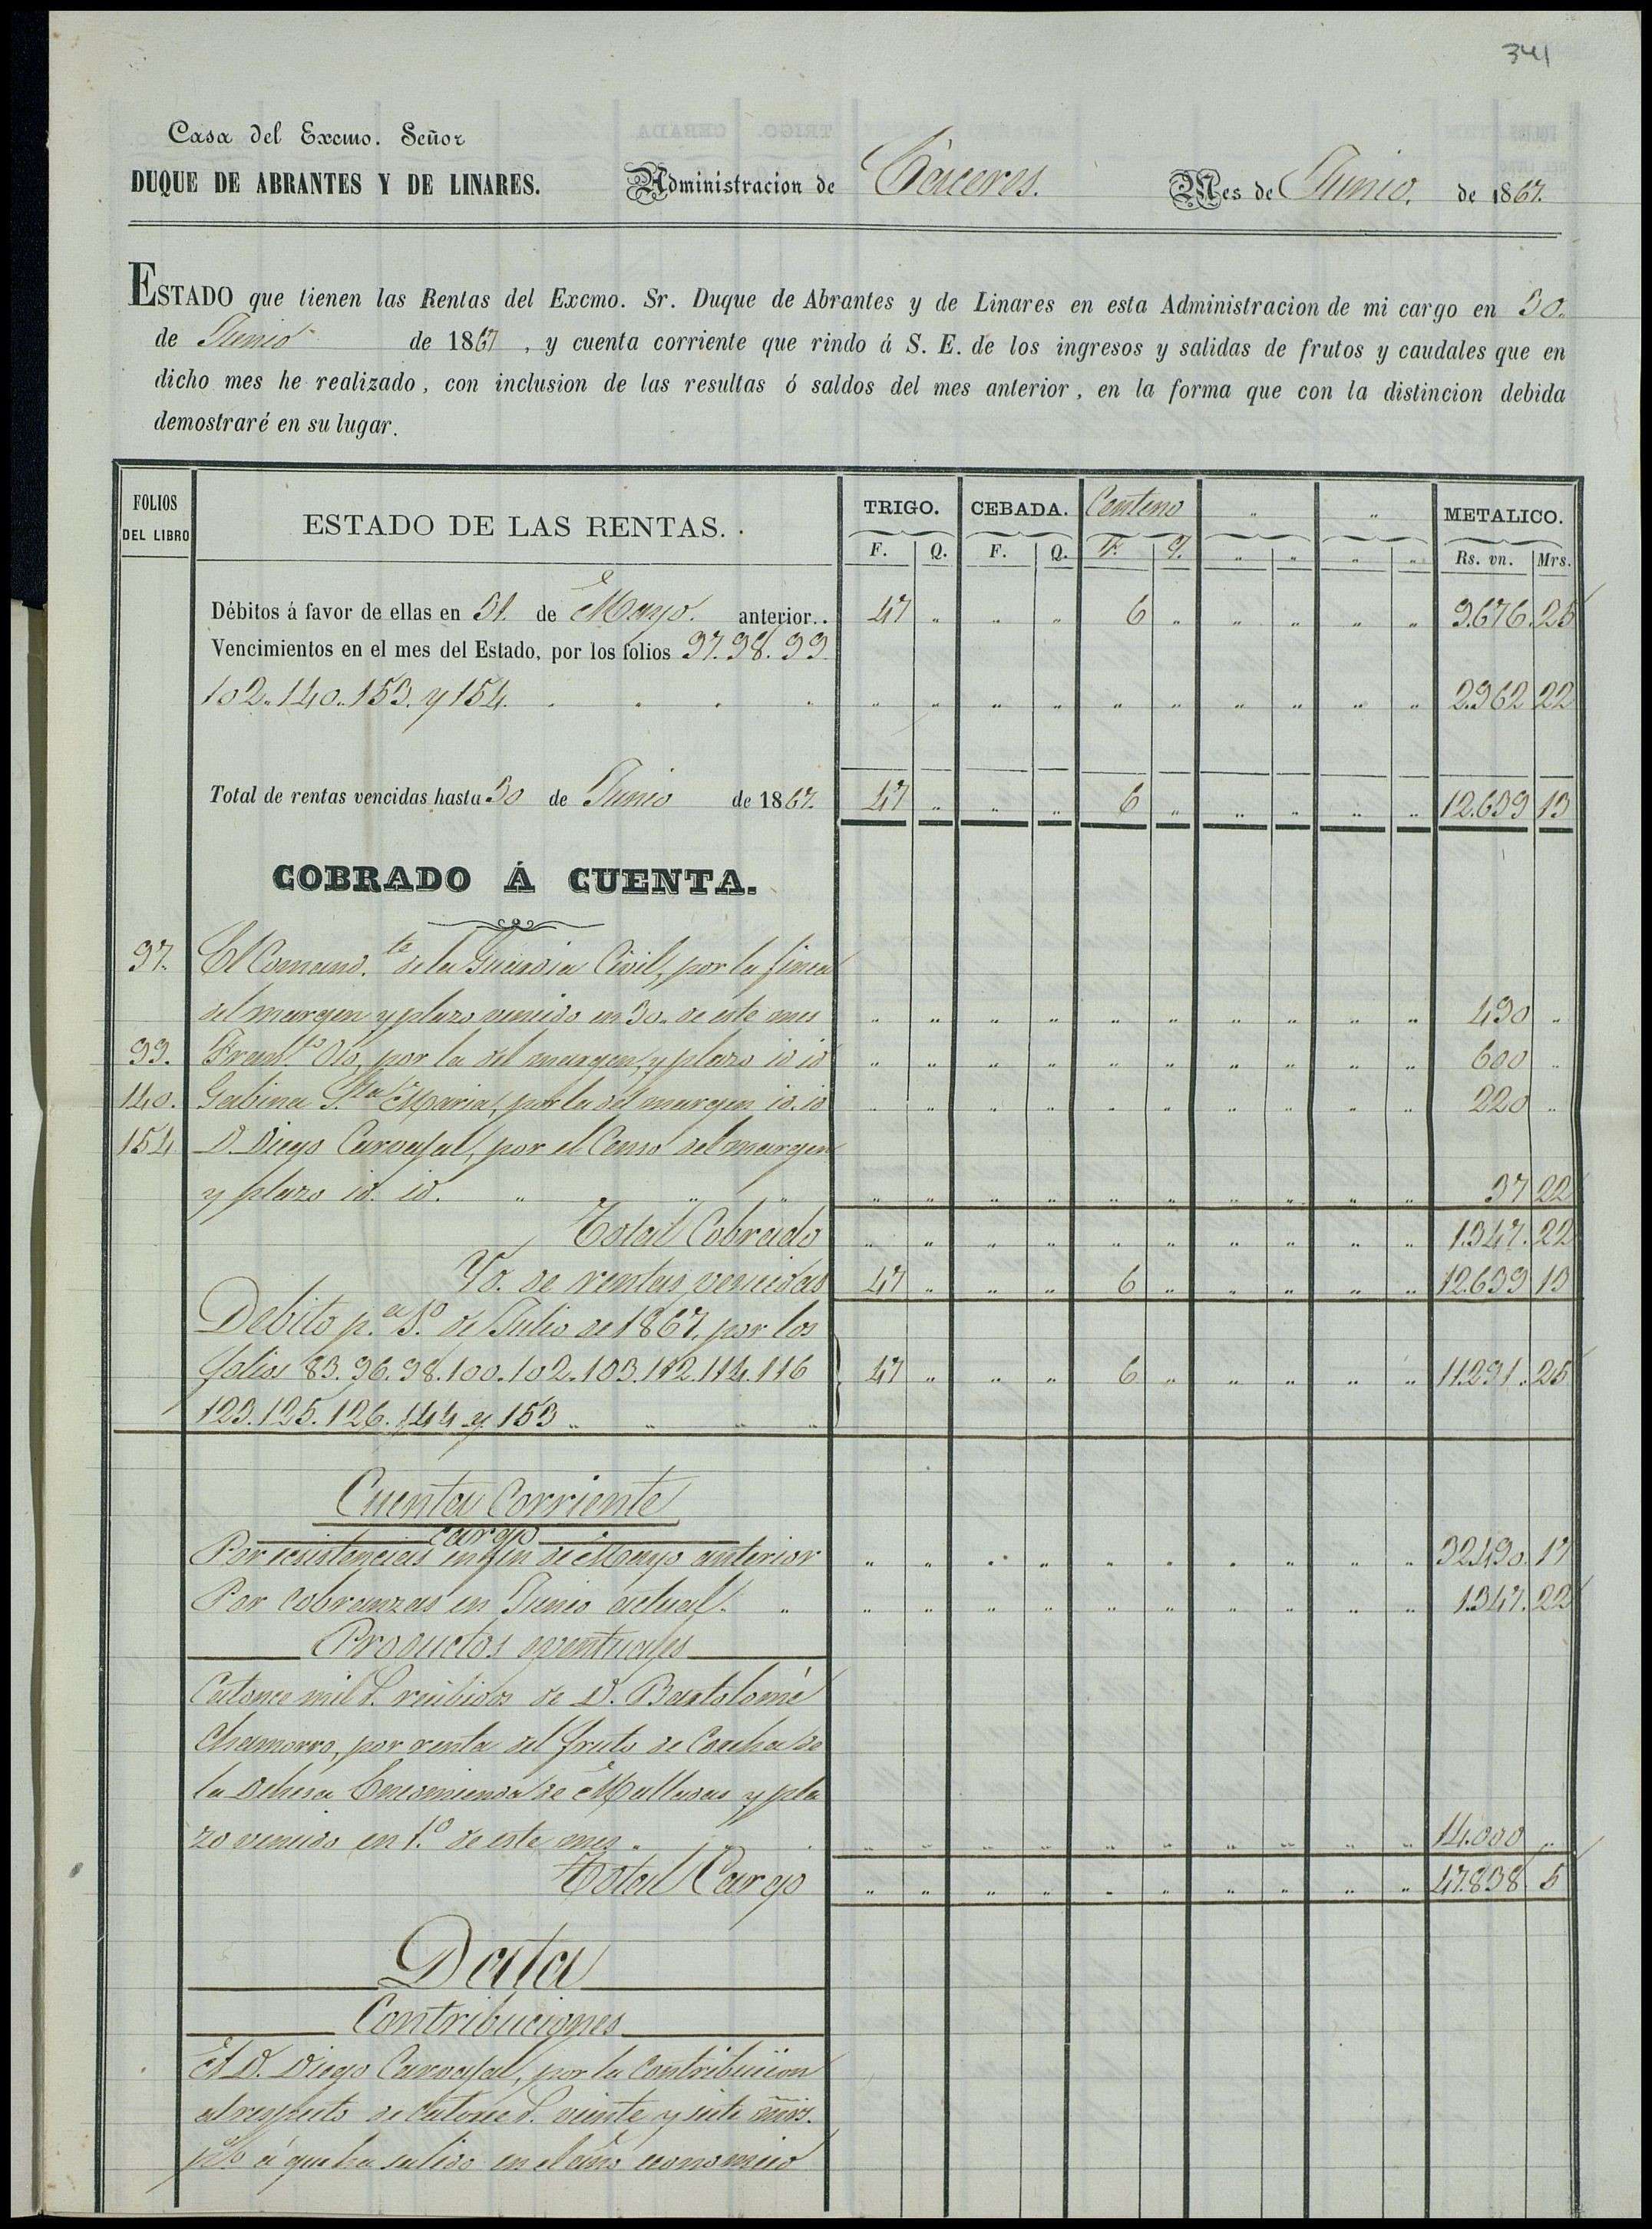 341
Casa del Excmo. Señor
DUQUE DE ABRANTES Y DE LINARES. Administracion de Cáceres. Mes de Junio. de 1867.
ESTADO que tienen las Rentas del Excmo. Sr. Duque de Abrantes y de Linares en esta Administracion de mi cargo en 30.
de Junio de 1867, y cuenta corriente que rindo á S. E. de los ingresos y salidas de frutos y caudales que en
dicho mes he realizado, con inclusion de las resultas ó saldos del mes anterior, en la forma que con la distincion debida
demostraré en su lugar.
FOLIOS DEL LIBRO ESTADO DE LAS RENTAS. TRIGO. CEBADA. Centeno " " METALICO.
F. Q. F. Q. F. Q. " " " " Rs. vn. Mrs.
Débitos á favor de ellas en 31. de Mayo. anterior.. 47 " " " 6 " " " " " 9.676. 25
Vencimientos en el mes del Estado, por los folios 97. 98. 99.
102. 140. 153. y 154. " " " " " " " " " " 2.962 22
Total de rentas vencidas hasta 30 de Junio de 1867. 47 " " " 6 " " " " " 12.639 13
COBRADO Á CUENTA.
97. El Comand.te de la Guardia Civil, por la finca
del margen y plazo vencido en 30. de este mes " " " " " " " " " " 490 "
99. Fran.co Oto, por la del margen, y plazo id id " " " " " " " " " " 600 "
140. Gabina S.ta Maria, por la del margen id. id " " " " " " " " " " 220 "
154 D. Diego Carvajal, por el Censo del margen
y plazo id. id. " " " " " " " " " " 37 22
Total Cobrado " " " " " " " " " " 1.347. 22
Yd. de rentas vencidas 47 " " " 6 " " " " " 12.639 13
Debito p.a 1.o de Julio de 1867, por los
folios 83. 96. 98. 100. 102. 103. 112. 114. 116 47 " " " 6 " " " " " 11.291. 25
123. 125. 126. 144 y 153 "
Cuenta Corriente
Cargo
Por existencias en fin de Mayo anterior " " " " " " " " " " 32.490. 17
Por cobranzas en Junio actual. " " " " " " " " " " 1.347. 22
Productos eventuales
Catorce mil r. recibidos de D. Bartolomé
Chamorro, por renta del fruto de Corcha de
la Dehesa Encomienda de Malladas y pla
zo vencido en 1.o de este mes " " " " " " " " " " 14.000 "
Total Cargo " " " " " " " " " " 47.838 5
Data
Contribuciones
A D. Diego Carvajal, por la Contribucion
al respecto de catorce r. veinte y siete mrs.
p% á que ha salido en el año economico